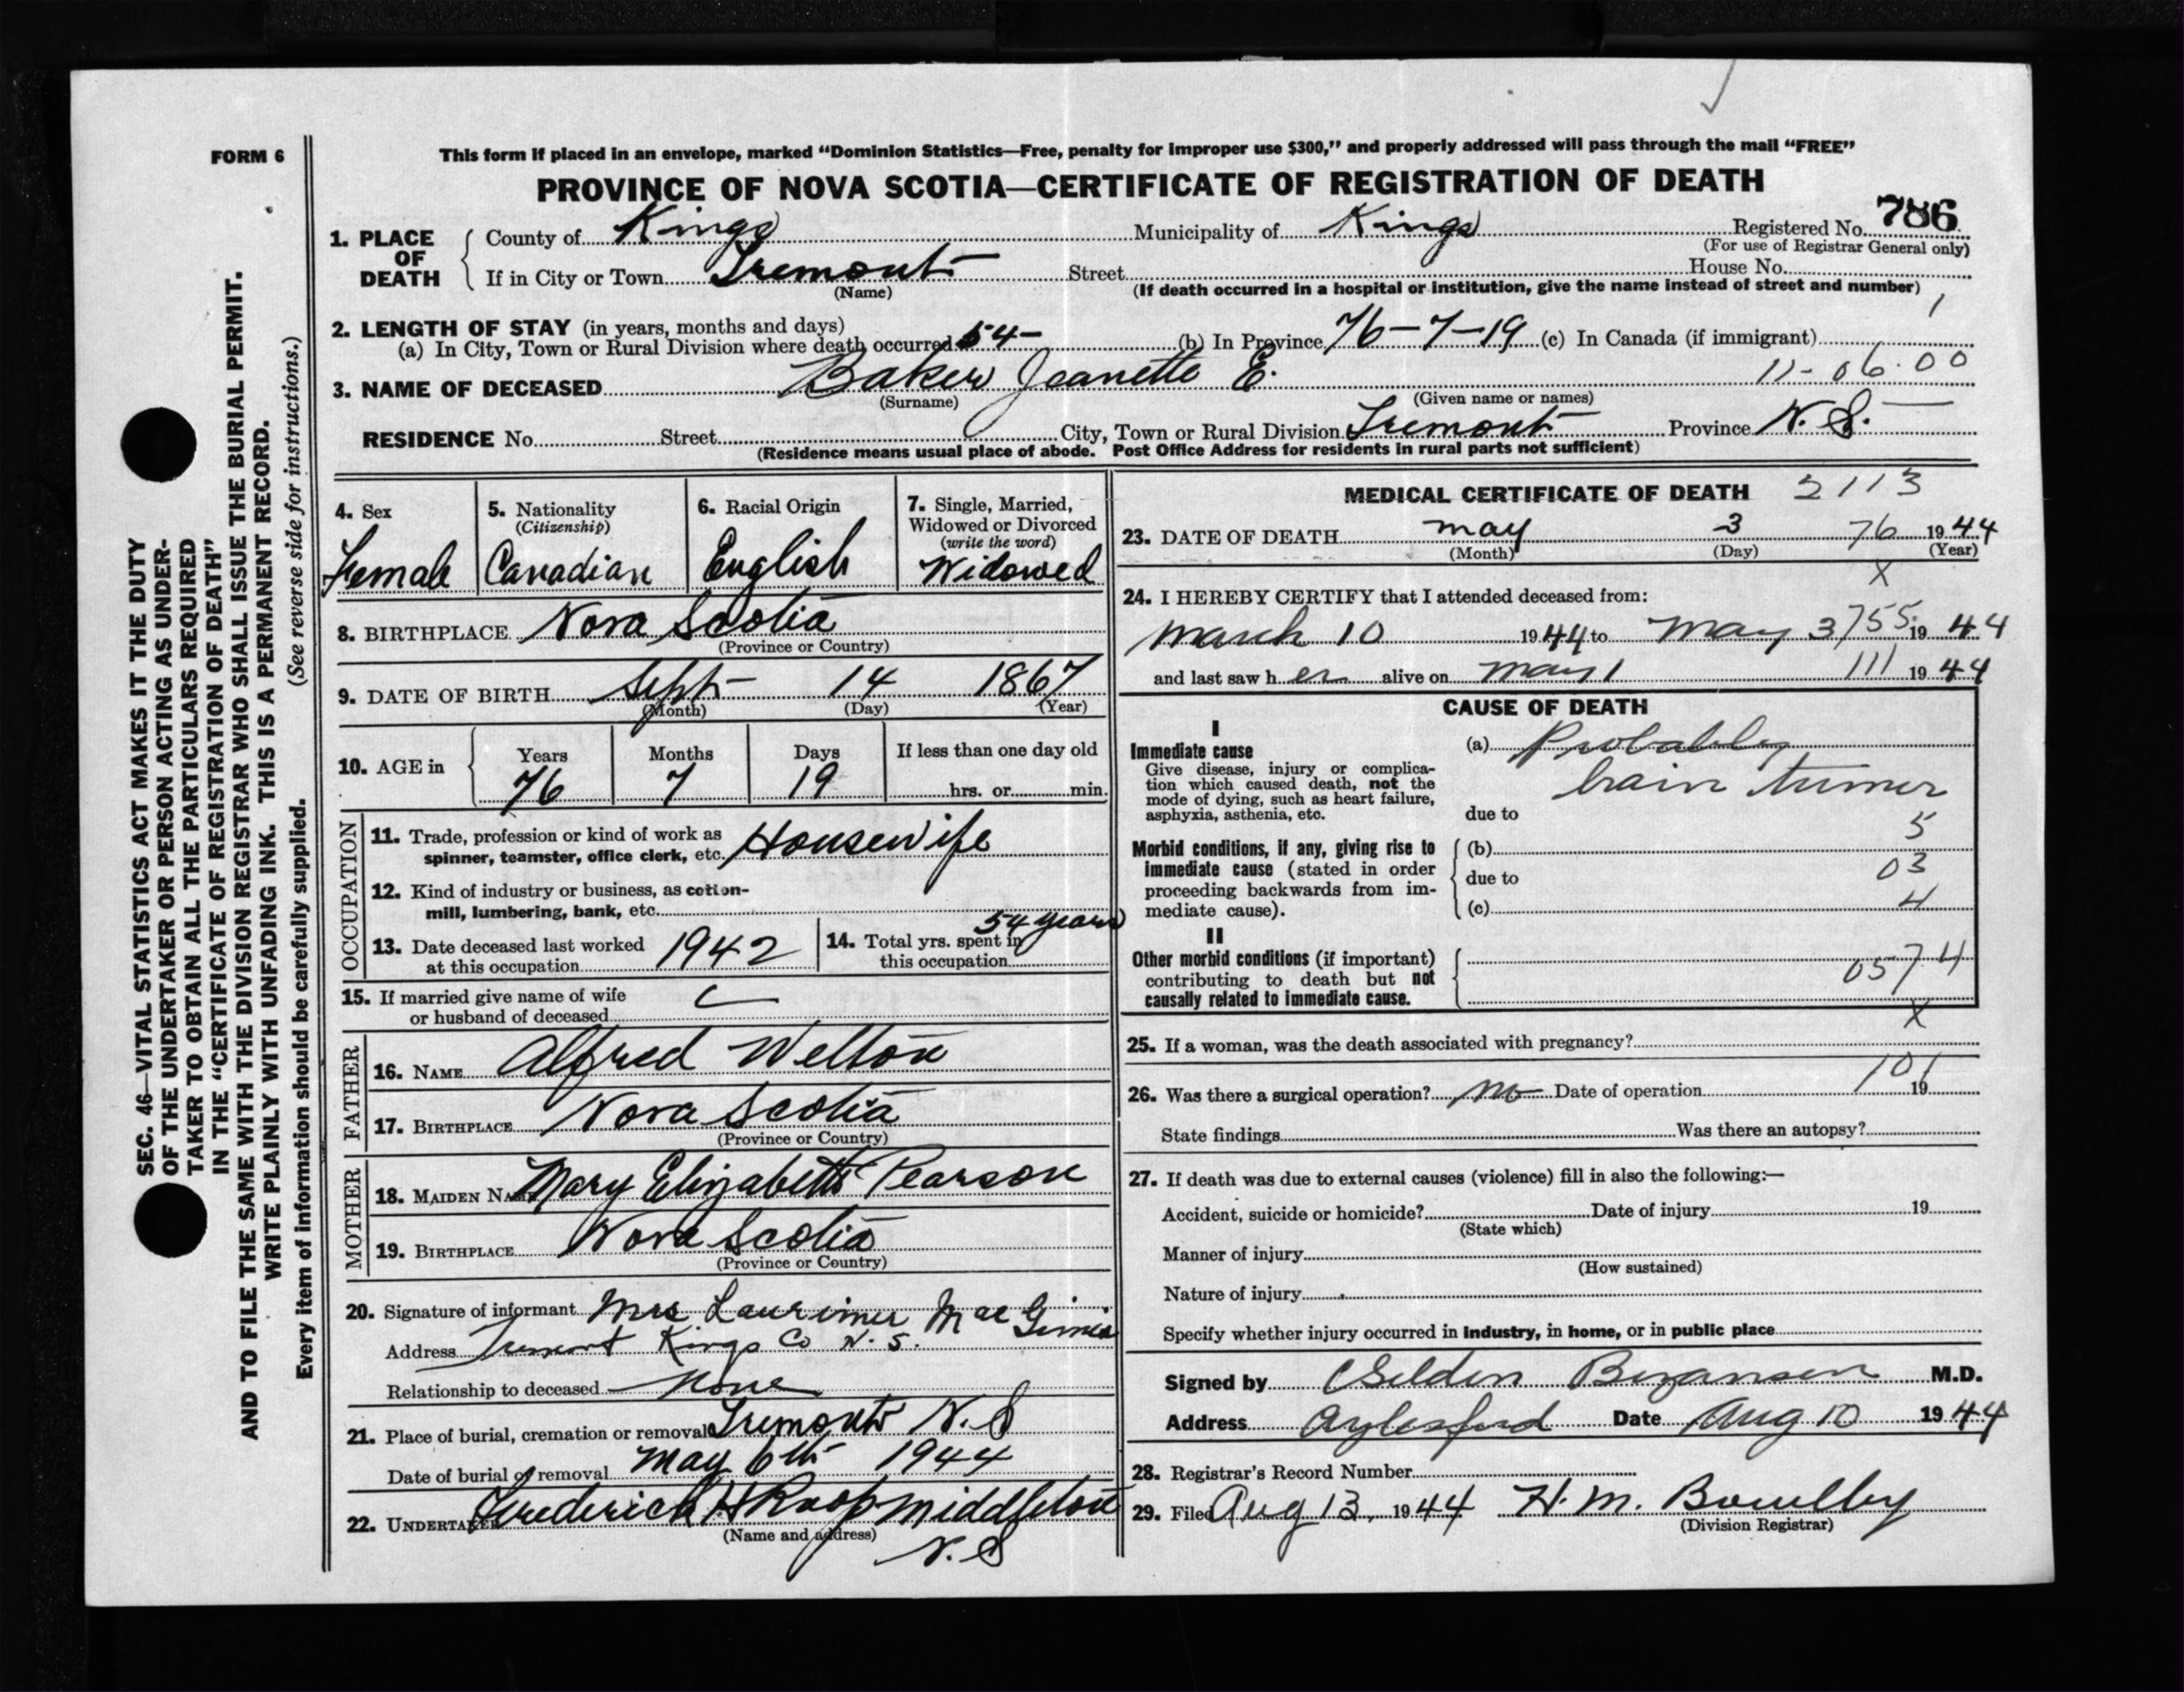 FORM 6
This form if placed in an envelope, marked “Dominion Statistics—Free, penalty for improper use $300,” and properly addressed will pass through the mail “FREE”
PROVINCE OF NOVA SCOTIA—CERTIFICATE OF REGISTRATION OF DEATH
1. PLACE OF DEATH
County of Kings Municipality of Kings Registered No. 786
(For use of Registrar General only)
If in City or Town Tremont Street House No.
(Name) (If death occurred in a hospital or institution, give the name instead of street and number)
1
2. LENGTH OF STAY (in years, months and days)
(a) In City, Town or Rural Division where death occurred 54- (b) In Province 76-7-19 (c) In Canada (if immigrant)
3. NAME OF DECEASED Baker Jeanette E. 11-06.00
(Surname) (Given name or names)
RESIDENCE No. Street City, Town or Rural Division Tremont Province N. S.
(Residence means usual place of abode. Post Office Address for residents in rural parts not sufficient)
4. Sex
Female
5. Nationality
(Citizenship)
Canadian
6. Racial Origin
English
7. Single, Married,
Widowed or Divorced
(write the word)
Widowed
8. BIRTHPLACE Nova Scotia
(Province or Country)
9. DATE OF BIRTH Sept 14 1867
(Month) (Day) (Year)
10. AGE in Years Months Days If less than one day old
76 7 19 hrs. or min.
OCCUPATION
11. Trade, profession or kind of work as
spinner, teamster, office clerk, etc. Housewife
12. Kind of industry or business, as cotton-
mill, lumbering, bank, etc.
13. Date deceased last worked
at this occupation 1942
14. Total yrs. spent in
this occupation 54 years
15. If married give name of wife
or husband of deceased
FATHER
16. NAME Alfred Welton
17. BIRTHPLACE Nova Scotia
(Province or Country)
MOTHER
18. MAIDEN NAME Mary Elizabeth Pearson
19. BIRTHPLACE Nova Scotia
(Province or Country)
20. Signature of informant Mrs Laurimer Mac
Address Tremont Kings Co N. S.
Relationship to deceased None
21. Place of burial, cremation or removal Tremont N. S
Date of burial or removal May 6th 1944
22. UNDERTAKER Frederick H Roop Middleton
(Name and address)
N. S
MEDICAL CERTIFICATE OF DEATH 2113
23. DATE OF DEATH May 3 76 1944
(Month) (Day) (Year)
X
24. I HEREBY CERTIFY that I attended deceased from:
March 10 1944 to May 3 755 1944
and last saw her alive on May 1 111 1944
CAUSE OF DEATH
I
Immediate cause
Give disease, injury or complica-
tion which caused death, not the
mode of dying, such as heart failure,
asphyxia, asthenia, etc.
(a) Probably
brain tumer
due to
5
Morbid conditions, if any, giving rise to
immediate cause (stated in order
proceeding backwards from im-
mediate cause).
(b)
due to 03
(c) 4
II
Other morbid conditions (if important)
contributing to death but not
causally related to immediate cause.
0574
X
25. If a woman, was the death associated with pregnancy?
101
26. Was there a surgical operation? no Date of operation 19
State findings Was there an autopsy?
27. If death was due to external causes (violence) fill in also the following:—
Accident, suicide or homicide? Date of injury 19
(State which)
Manner of injury
(How sustained)
Nature of injury
Specify whether injury occurred in industry, in home, or in public place
Signed by Selden Bezanson M.D.
Address Aylesford Date Aug 10 1944
28. Registrar's Record Number
29. Filed Aug 13, 1944 H. M. Bowlby
(Division Registrar)
SEC. 46—VITAL STATISTICS ACT MAKES IT THE DUTY
OF THE UNDERTAKER OR PERSON ACTING AS UNDER-
TAKER TO OBTAIN ALL THE PARTICULARS REQUIRED
IN THE “CERTIFICATE OF REGISTRATION OF DEATH”
AND TO FILE THE SAME WITH THE DIVISION REGISTRAR WHO SHALL ISSUE THE BURIAL PERMIT.
WRITE PLAINLY WITH UNFADING INK. THIS IS A PERMANENT RECORD.
Every item of information should be carefully supplied. (See reverse side for instructions.)